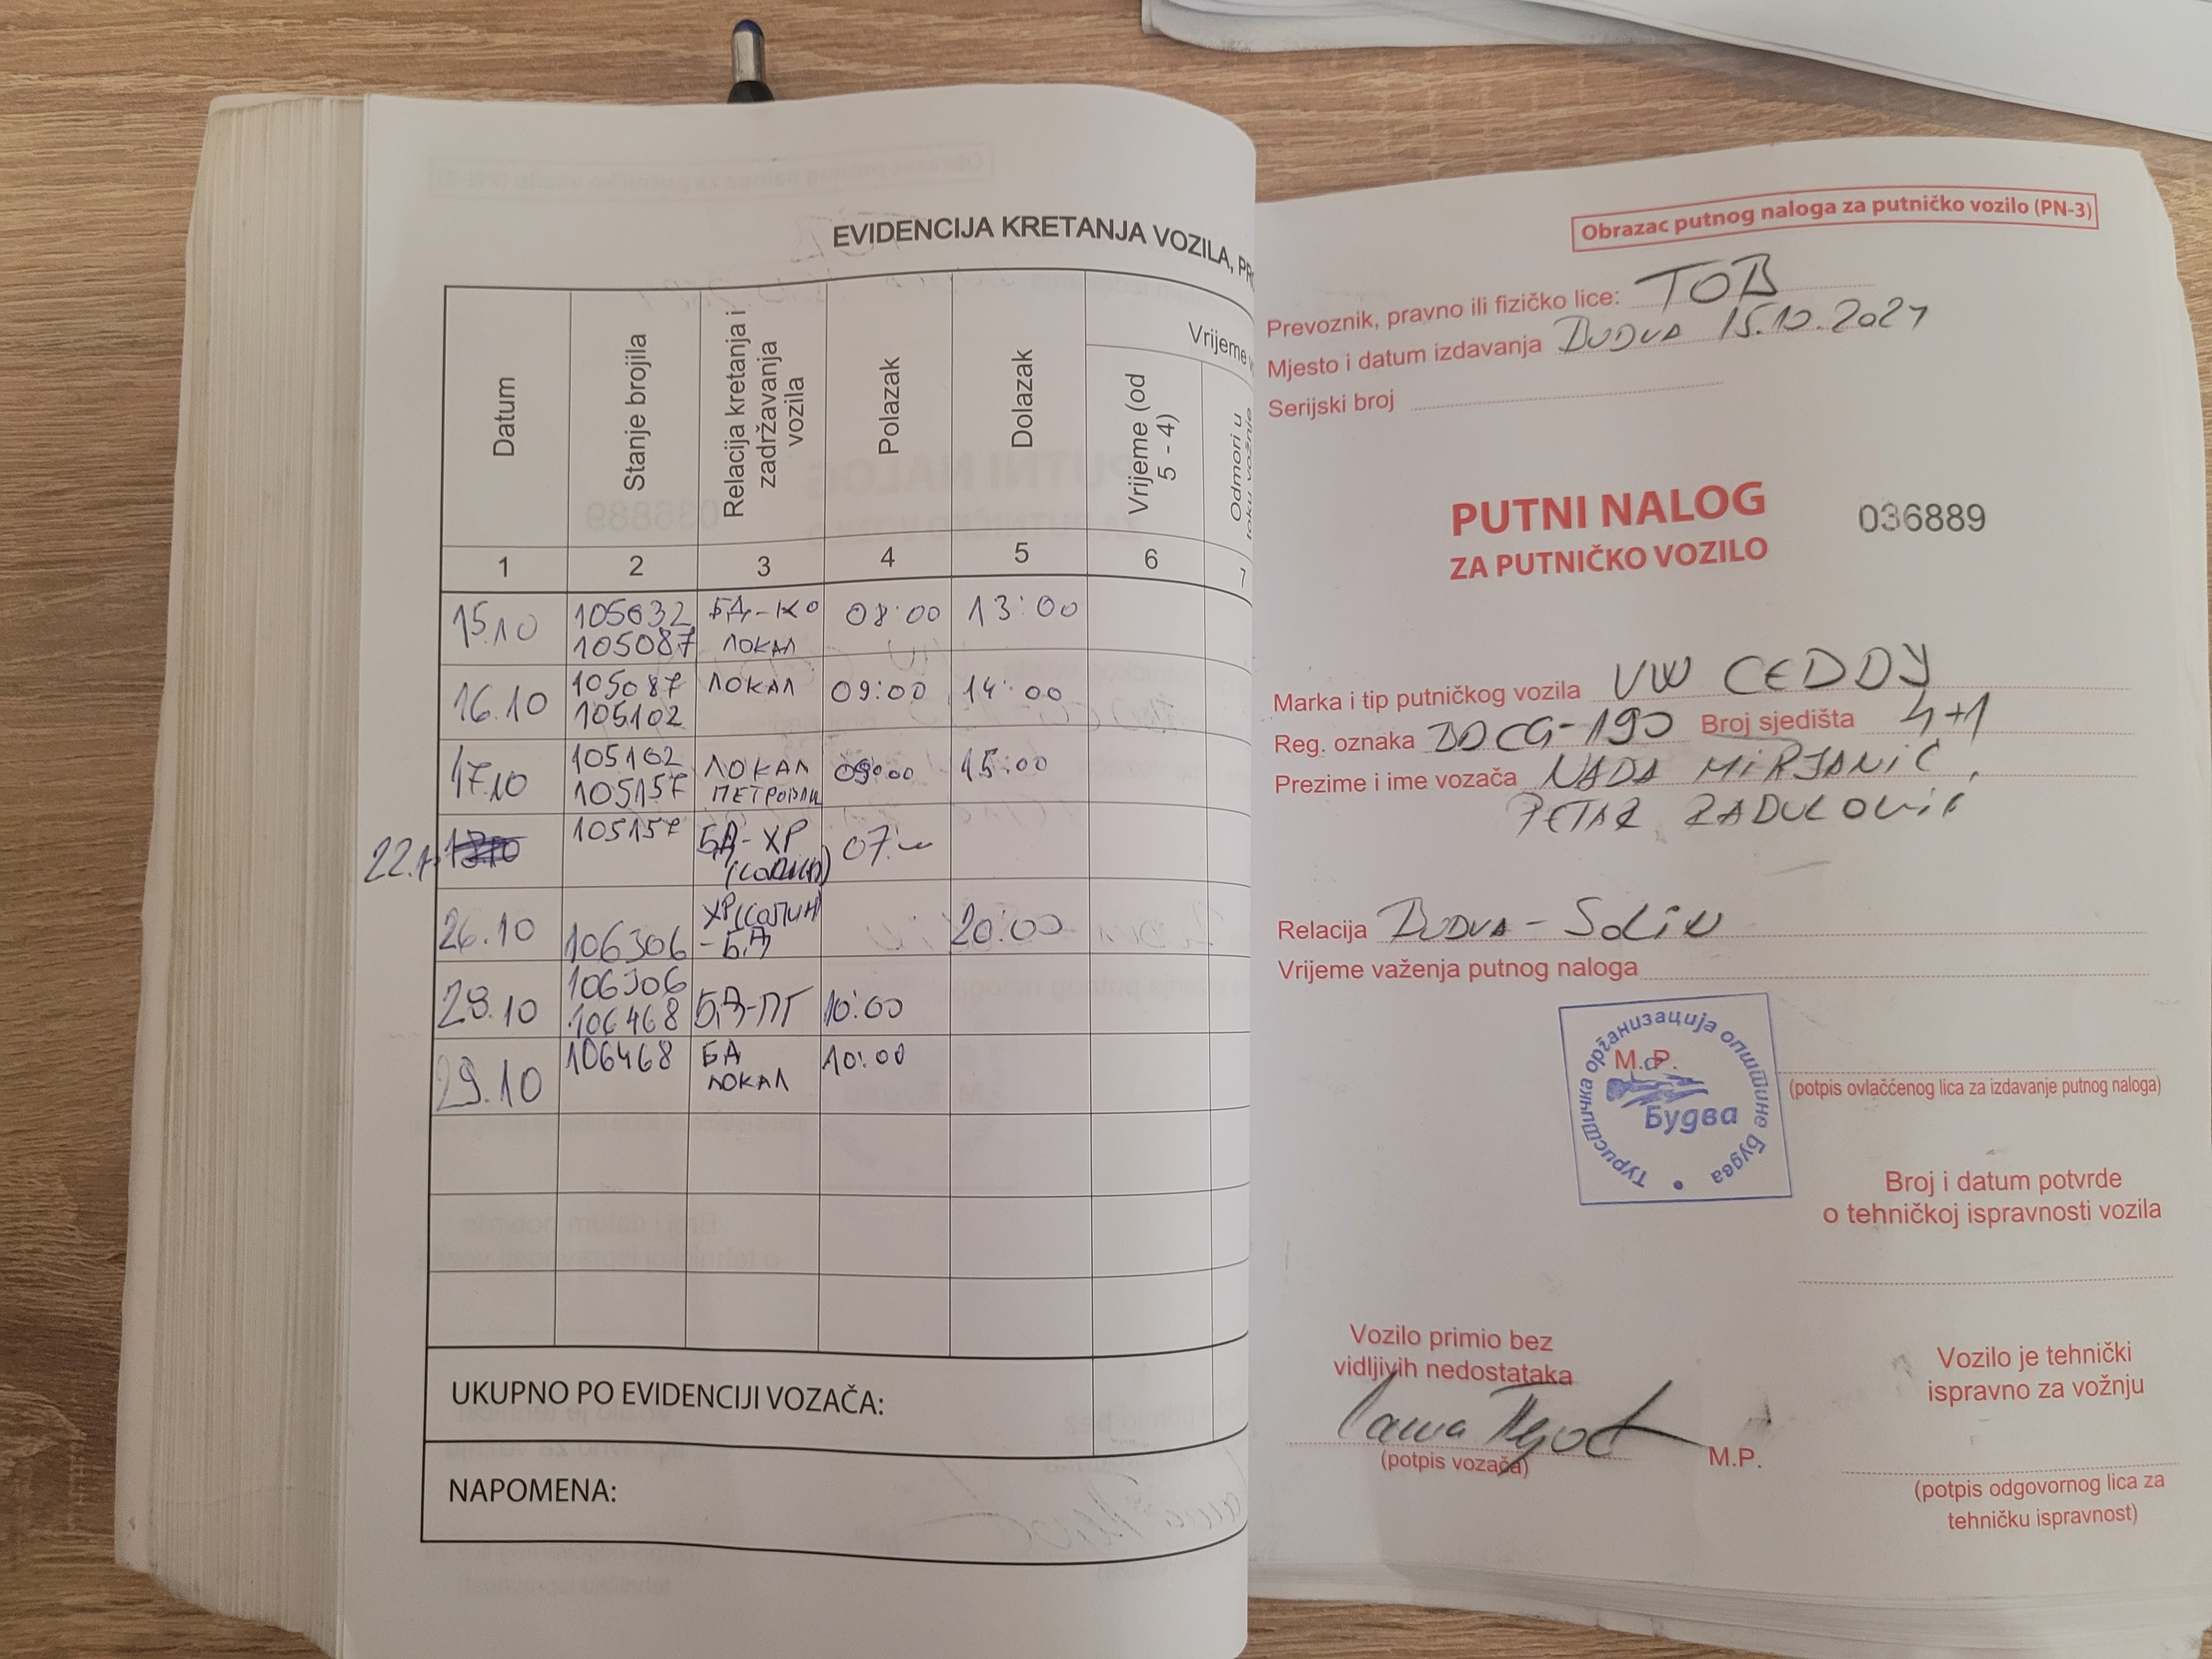 EVIDENCIJA KRETANJA VOZILA, PR
Datum
Stanje brojila
Relacija kretanja i zadržavanja vozila
Polazak
Dolazak
Vrijeme
Vrijeme (od 5 - 4)
Odmori u toku vožnje
1 2 3 4 5 6 7
15.10 105032 БД-КО 08:00 13:00
105087 ЛОКАЛ
16.10 105087 ЛОКАЛ 09:00 14:00
105102
17.10 105102 ЛОКАЛ 09:00 15:00
105157 ПЕТРОВАЦ
105157 БД-ХР 07:
22.1 (СОЛИН)
26.10 ХР(СОЛИН) 20:00
106306 -БД
28.10 106306 БД-ПГ 10:00
106468
29.10 106468 БД 10:00
ЛОКАЛ
UKUPNO PO EVIDENCIJI VOZAČA:
NAPOMENA:
Obrazac putnog naloga za putničko vozilo (PN-3)
Prevoznik, pravno ili fizičko lice: TOB
Mjesto i datum izdavanja BUDVA 15.10.2021
Serijski broj
PUTNI NALOG 036889
ZA PUTNIČKO VOZILO
Marka i tip putničkog vozila VW CEDDY
Reg. oznaka BD CG-190 Broj sjedišta 4+1
Prezime i ime vozača NADA MIRJANIĆ,
PETAR RADULOVIĆ
Relacija BUDVA - Solin
Vrijeme važenja putnog naloga
Туристичка организација општине Будва
M.P.
Будва
(potpis ovlaććenog lica za izdavanje putnog naloga)
Broj i datum potvrde
o tehničkoj ispravnosti vozila
Vozilo primio bez
vidljivih nedostataka
(potpis vozača)
M.P.
Vozilo je tehnički
ispravno za vožnju
(potpis odgovornog lica za
tehničku ispravnost)